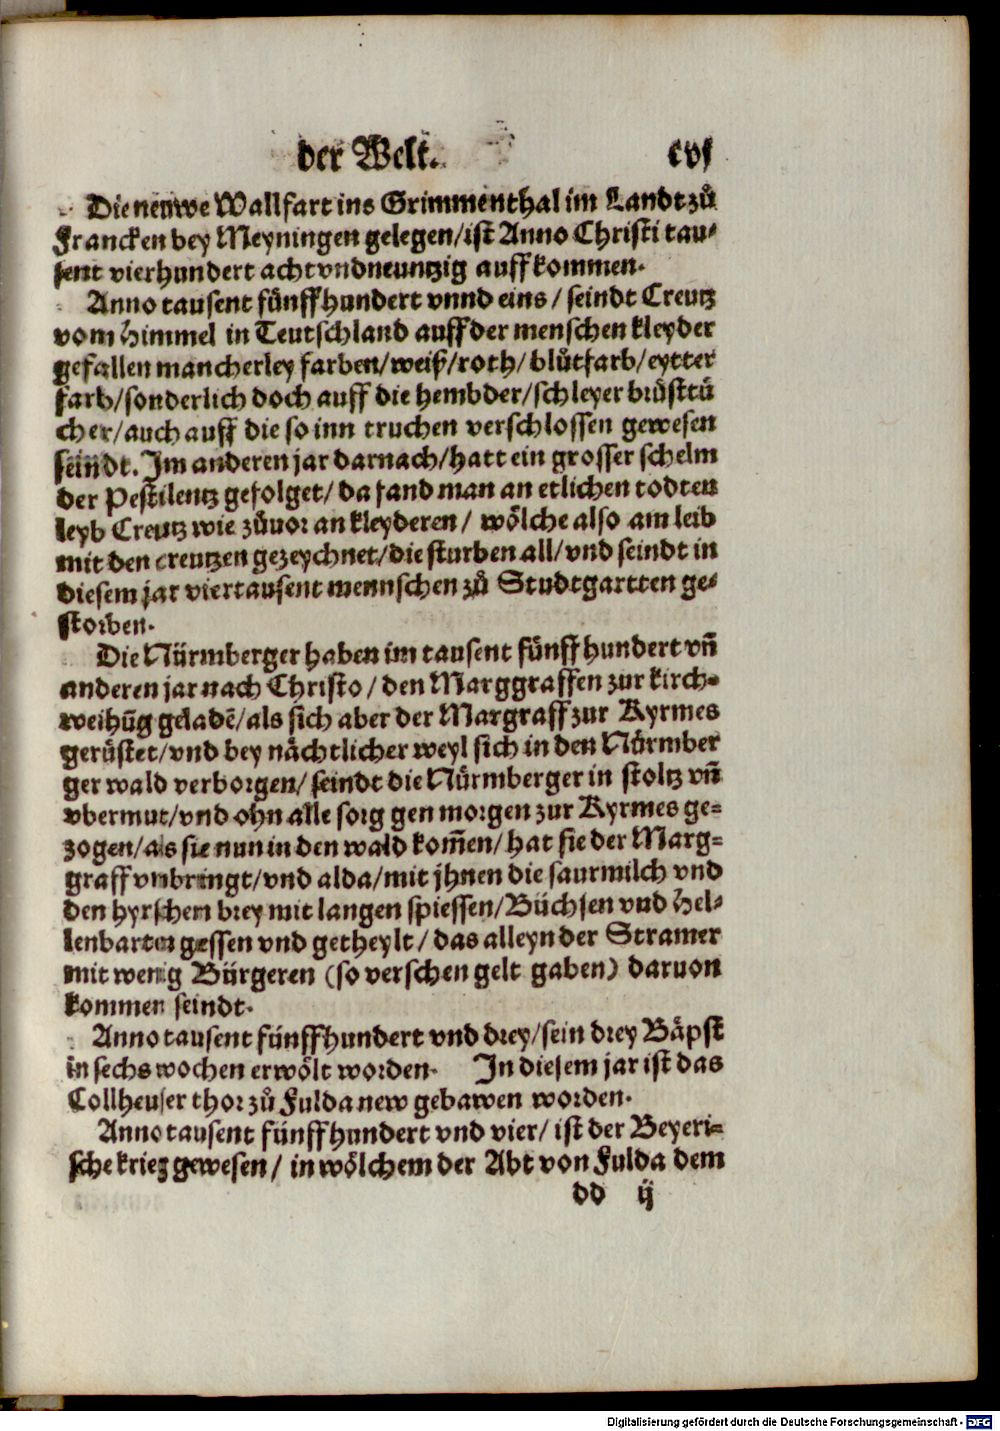 der Welt. cvj
Die neuwe Wallfart ins Grimmenthal im Landt zů
Francken bey Meyningen gelegen/ist Anno Christi tau-
sent vierhundert acht vndneuntzig auffkommen.
Anno tausent fünffhundert vnnd eins/ seindt Creutz
vom Himmel in Teutschland auff der menschen kleyder
gefallen mancherley farben/weiß/roth/ blůtfarb/eytter
farb/sonderlich doch auff die hembder/schleyer brůsttů
cher/auch auff die so inn truchen verschlossen gewesen
seindt. Im anderen jar darnach/hatt ein grosser schelm
der Pestilentz gefolget/ da fand man an etlichen todten
leyb Creutz wie zůuor an kleyderen/ wölche also am leib
mit den creutzen gezeychnet/die sturben all/vnd seindt in
diesem jar viertausent mennschen zů Studtgartten ge-
storben.
Die Nürmberger haben im tausent fünffhundert vñ
anderen jar nach Christo/ den Marggraffen zur kirch-
weihũg geladẽ/als sich aber der Margraff zur Kyrmes
gerüstet/vnd bey nächtlicher weyl sich in den Nürmber
ger wald verborgen/ seindt die Nürmberger in stoltz vñ
vbermut/vnd ohn alle sorg gen morgen zur Kyrmes ge-
zogen/als sie nun in den wald kom̃en/ hat sie der Marg-
graff vmbringt/vnd alda/mit jhnen die saurmilch vnd
den hyrschem brey mit langen spiessen/Büchsen vnd Hel-
lenbarten gessen vnd getheylt/ das alleyn der Stramer
mit wenig Bürgeren (so verschen gelt gaben) daruon
kommen seindt.
Anno tausent fünffhundert vnd drey/sein drey Bäpst
in sechs wochen erwölt worden. In diesem jar ist das
Collheuser thor zů Fulda new gebawen worden.
Anno tausent fünffhundert vnd vier/ ist der Beyeri-
sche krieg gewesen/ in wölchem der Abt von Fulda dem
dd ij
Digitalisierung gefördert durch die Deutsche Forschungsgemeinschaft - DFG